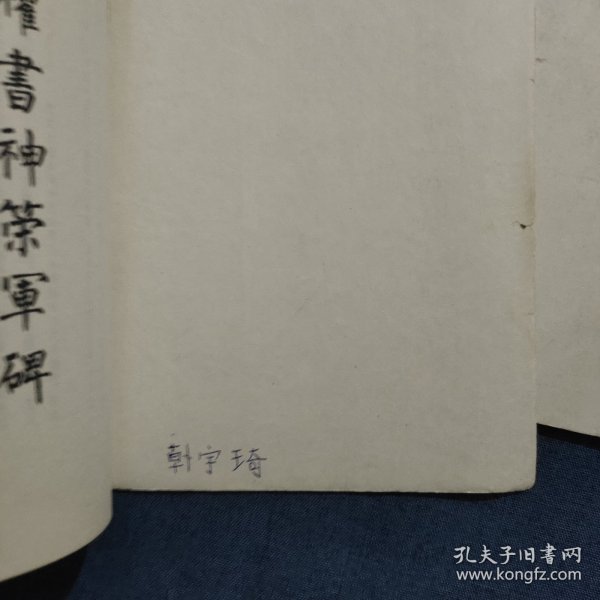 權書神策軍碑
韩宇琦
孔夫子旧書网
www.kongfz.com